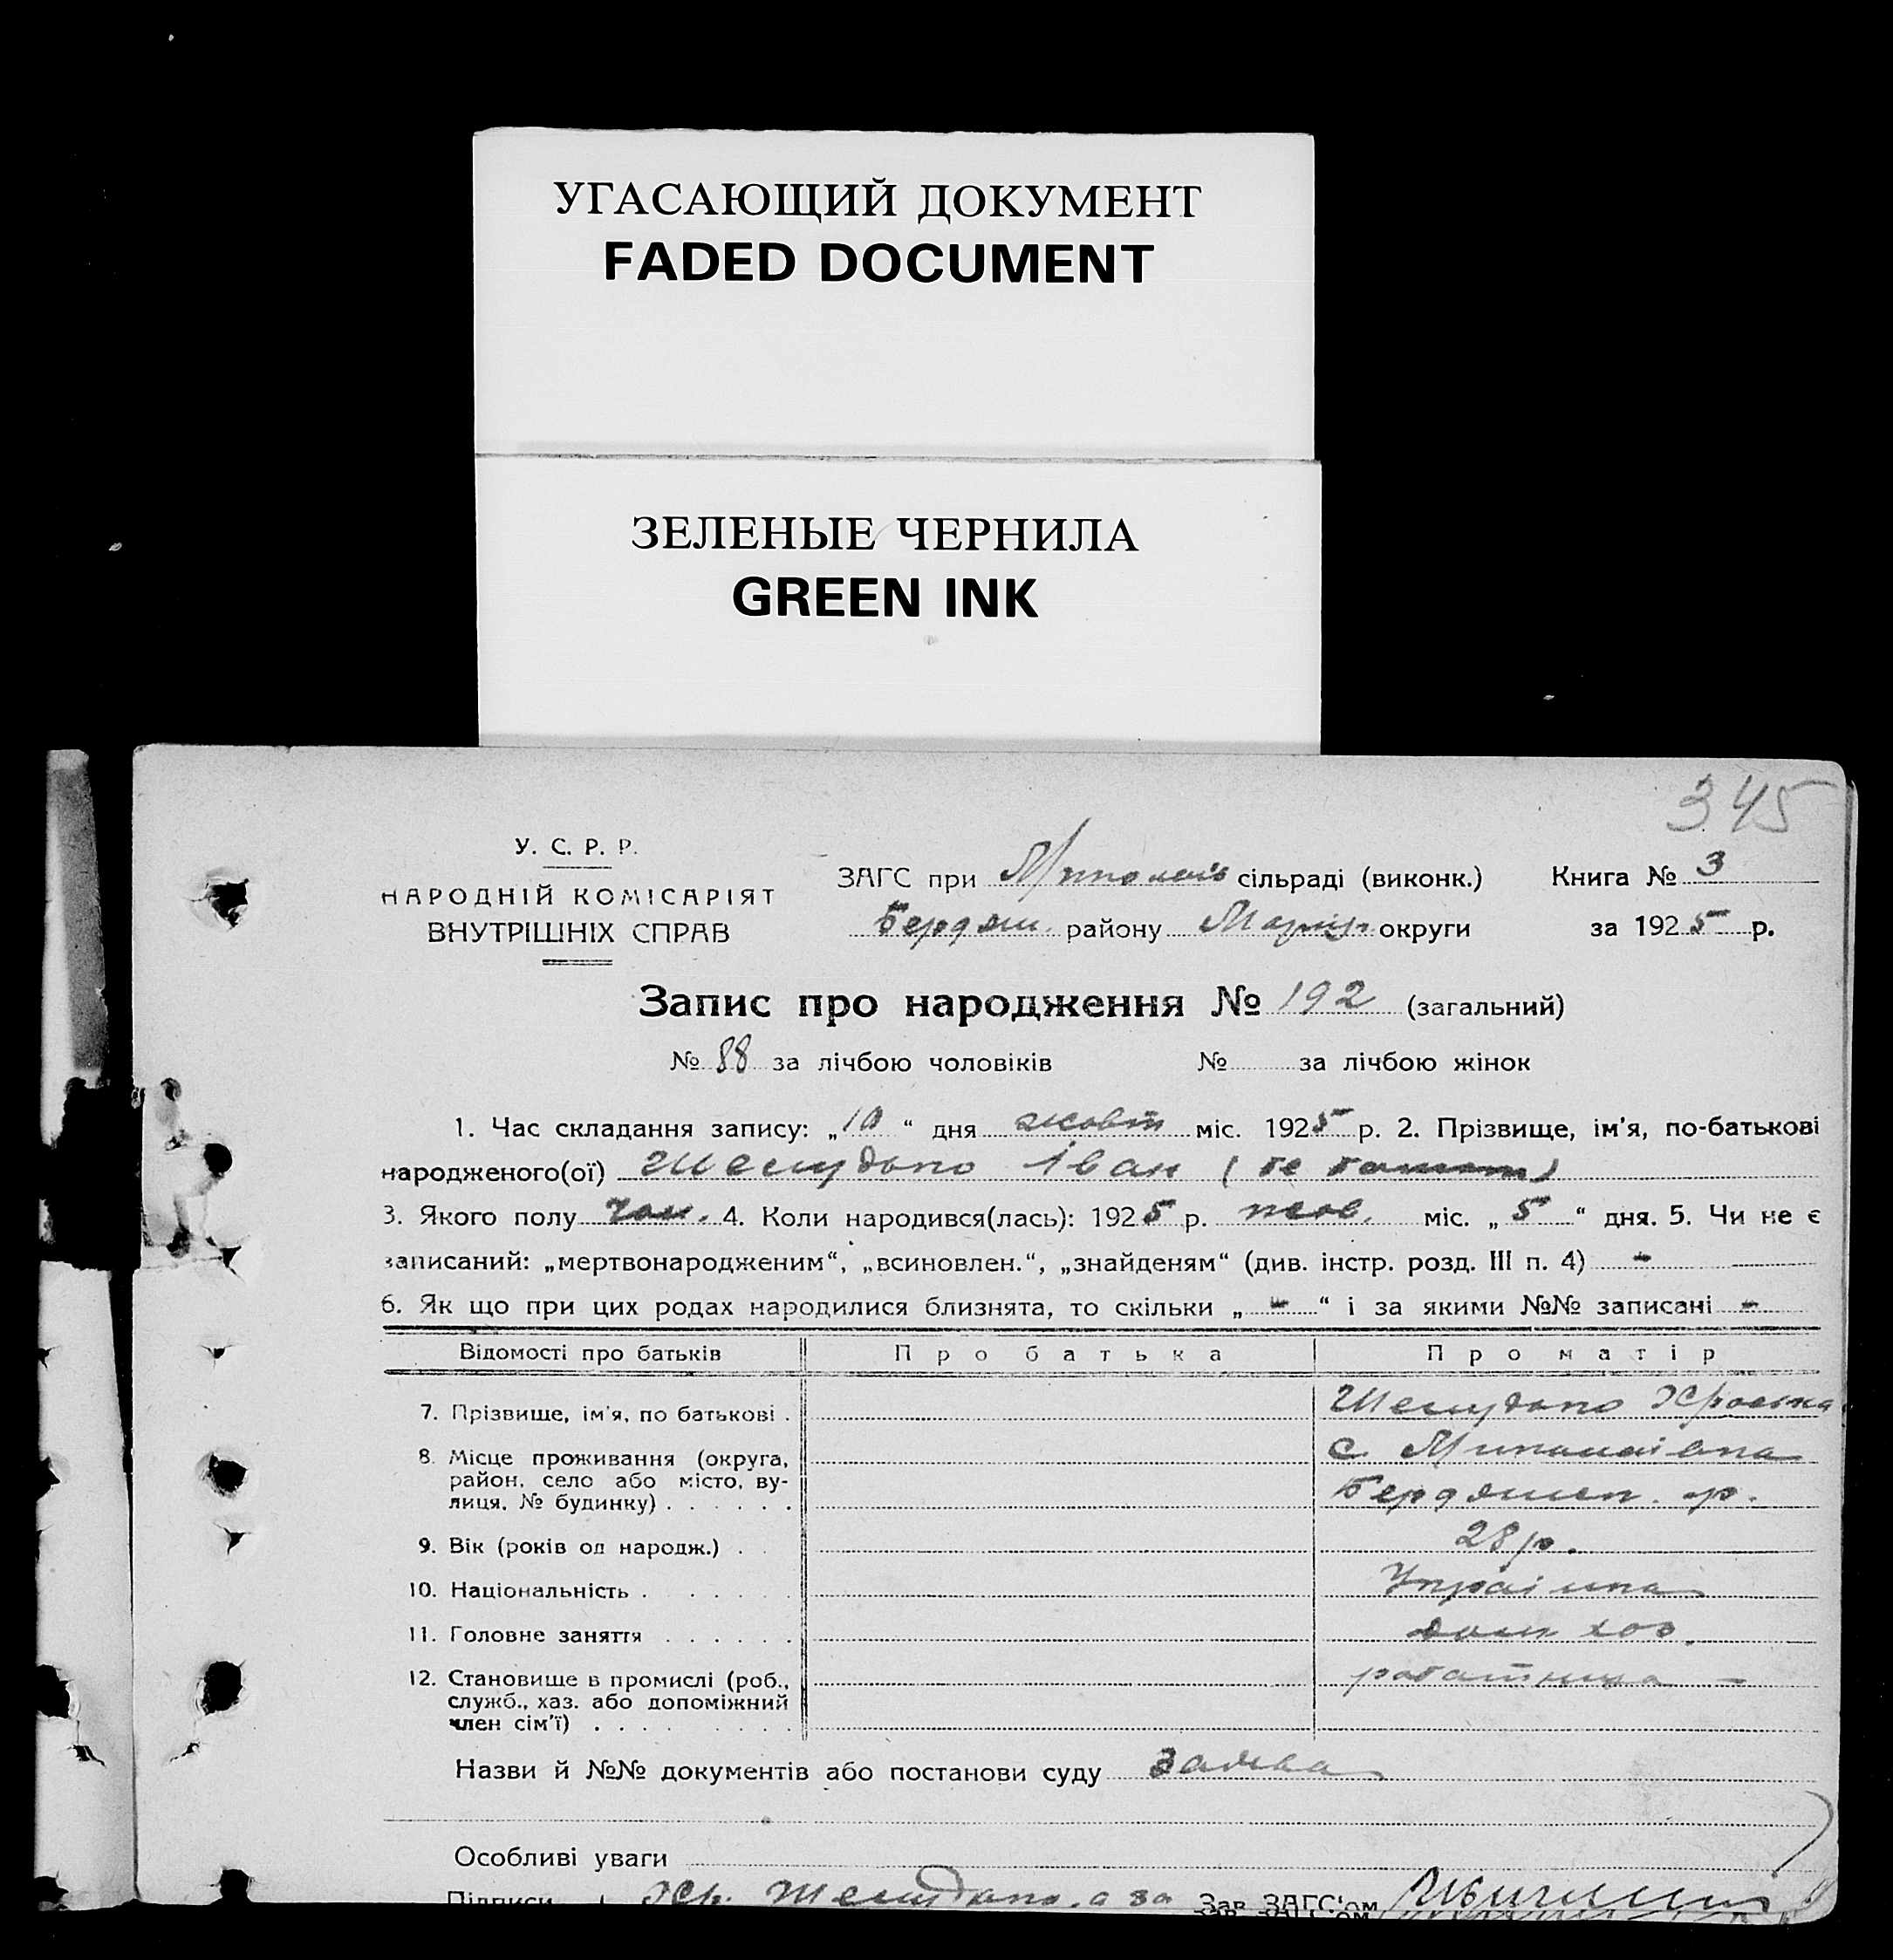 УГАСАЮЩИЙ ДОКУМЕНТ
FADED DOCUMENT
ЗЕЛЕНЫЕ ЧЕРНИЛА
GREEN INK
345
У. С. Р. Р.
НАРОДНІЙ КОМІСАРІЯТ
ВНУТРІШНІХ СПРАВ
ЗАГС при сільраді (виконк.) Книга № 3
Бердян. району Маріуп. округи за 1925 р.
Запис про народження № 192 (загальний)
№ 88 за лічбою чоловіків № за лічбою жінок
1. Час складання запису: „10“ дня жовт міс. 1925 р. 2. Прізвище, ім'я, по-батькові
народженого(ої) Шелудько Іван
3. Якого полу чол. 4. Коли народився(лась): 1925 р. жов. міс. „5“ дня. 5. Чи не є
записаний: „мертвонародженим“, „всиновлен.“, „знайденям“ (див. інстр. розд. III п. 4) -
6. Як що при цих родах народилися близнята, то скільки „-“ і за якими №№ записані -
Відомості про батьків Про батька Про матір
7. Прізвище, ім'я, по батькові . Шелудько
8. Місце проживання (округа, с. Миколаівка
район, село або місто, ву- Бердянськ. р.
лиця, № будинку) . . . . . .
9. Вік (років од народж.) . 28 р.
10. Національність . . . . . Украінка
11. Головне заняття . . . . . . дом хоз.
12. Становище в промислі (роб., работница -
служб., хаз. або допоміжний
член сім'ї) . . . . . . . .
Назви й №№ документів або постанови суду Заява
Особливі уваги
Підписи Шелудько, а за Зав. ЗАГС'ом